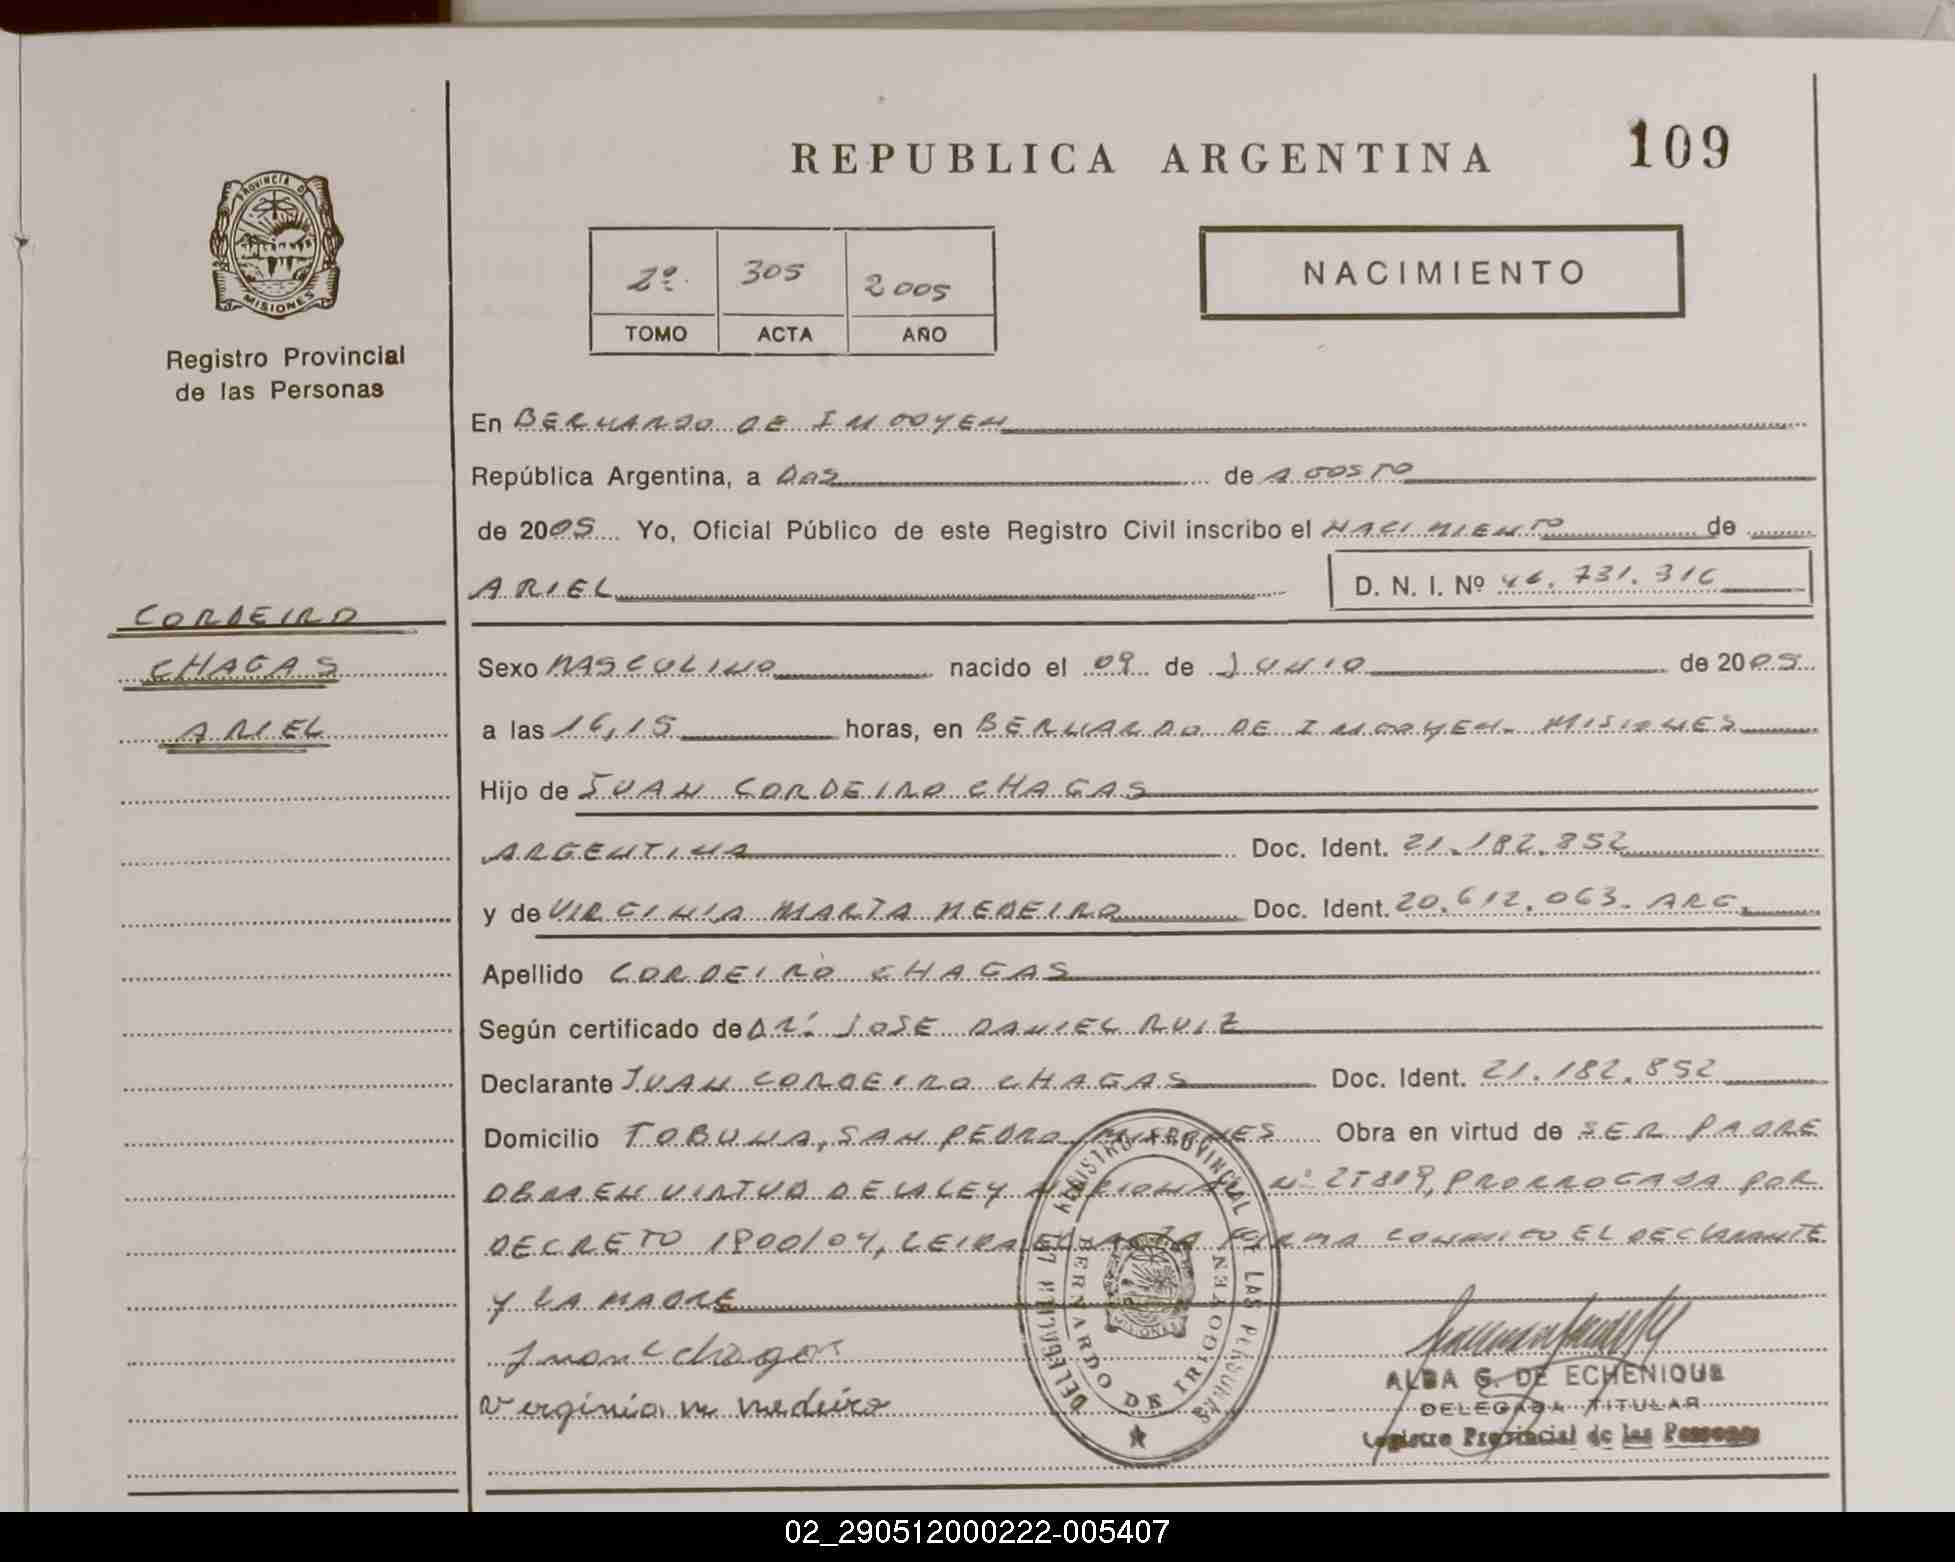 REPUBLICA ARGENTINA
109
PROVINCIA DE
MISIONES
Registro Provincial
de las Personas
2º. 305 2005
TOMO ACTA AÑO
NACIMIENTO
En BERNARDO DE IRIGOYEN
República Argentina, a DOS de AGOSTO
de 2005 Yo, Oficial Público de este Registro Civil inscribo el NACIMIENTO de
ARIEL D. N. I. Nº 46.731.316
CORDEIRO
CHAGAS
ARIEL
Sexo MASCULINO nacido el 09 de JUNIO de 2005
a las 16,15 horas, en BERNARDO DE IRIGOYEN- MISIONES
Hijo de JUAN CORDEIRO CHAGAS
ARGENTINA Doc. Ident. 21.182.852
y de VIRGINIA MARTA MEDEIRO Doc. Ident. 20.612.063. ARG.
Apellido CORDEIRO CHAGAS
Según certificado de DR. JOSE DANIEL RUIZ
Declarante JUAN CORDEIRO CHAGAS Doc. Ident. 21.182.852
Domicilio TOBUNA, SAN PEDRO, MISIONES Obra en virtud de SER PADRE
OBRA EN VIRTUD DE LA LEY NACIONAL Nº 25819, PRORROGADA POR
DECRETO 1900/04, LEIDA EL ACTA FIRMA CONMIGO EL DECLARANTE
Y LA MADRE
Juan C chagas
Verginia m medeiro
DELEGACION REGISTRO PROVINCIAL DE LAS PERSONAS
BERNARDO DE IRIGOYEN
MISIONES
ALBA G. DE ECHENIQUE
DELEGADA TITULAR
Registro Provincial de las Personas
02_290512000222-005407